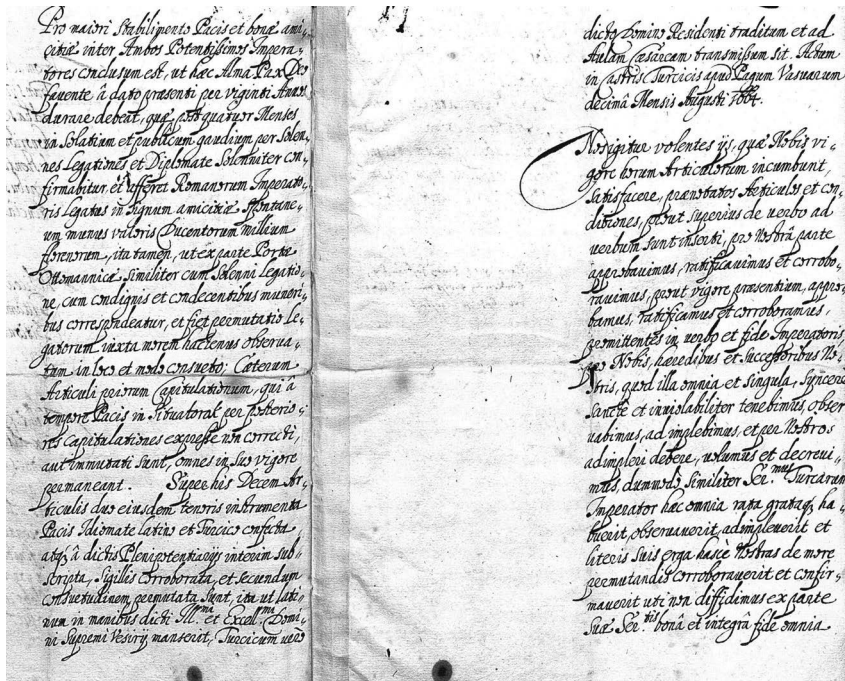 Pro maiori Stabilimento Pacis et bonæ ami-
citiæ inter Ambos Potentissimos Impera-
tores conclusum est, ut hæc Alma Pax Deo
favente â dato præsenti per viginti Annos
durare debeat, quæ post quatuor Menses
in Solatium et publicum gaudium per Solen-
nes Legationes et Diplomate Solenniter con-
firmabitur, et afferet Romanorum Imperato-
ris Legatus in Signum amicitiæ Spontane-
um munus valoris Ducentorum millium
florenorum, ita tamen, ut ex parte Portæ
Ottomannicæ Similiter cum Solenni Legatio-
ne, cum condignis et condecentibus muneri-
bus correspondeatur, et fiet permutatio Le-
gatorum iuxta morem hactenus observa-
tum in loco et modo consueto; Cæterum
Articuli priorum Capitulationum, qui â
tempore Pacis in Situatorak per posterio-
res capitulationes expresse non correcti,
aut immutati Sunt, omnes in Suo vigore
permaneant. Super his Decem Ar-
ticulis duo eiusdem tenoris instrumenta
Pacis Idiomate latino et Turcico confecta
atq3 â dictis Plenipotentiarijs interim sub-
scripta, Sigillis corroborata, et secundum
consuetudinem permutata Sunt, ita ut lati-
num in manibus dicti Ill.mi et Excell.mi Domi-
ni Supremi Vesirij manserit, Turcicum verò
dicto Domino Residenti traditum et ad
Aulam Cæsaream transmissum sit. Actum
in castris Turcicis apud Pagum Vasuarum
decimâ Mensis Augusti 1664.
Nos igitur volentes ijs, quæ Nobis vi-
gore horum Articulorum incumbunt,
Satisfacere, prænotatos Articulos et con-
ditiones, prout superius de verbo ad
verbum sunt inserti, pro Nostrâ parte
approbavimus, ratificavimus et corrobo-
ravimus, prout vigore præsentium, appro-
bamus, ratificamus et corroboramus,
promittentes in verbo et fide Imperatoris,
pro Nobis, hæredibus et Successoribus No-
stris, quod illa omnia et singula, Syncere
Sancte et inviolabiliter tenebimus, obser
vabimus, ad implebimus, et per Nostros
adimpleri debere, volumus et decrevi-
mus, dummodo Similiter Ser.mus Turcarum
Imperator hæc omnia rata grataq3 ha-
buerit, observaverit, adimpleverit et
literis Suis erga hasce Nostras de more
permutandis corroboraverit et confir-
maverit uti non diffidimus ex parte
Suæ Ser.tis bonâ et integrâ fide omnia